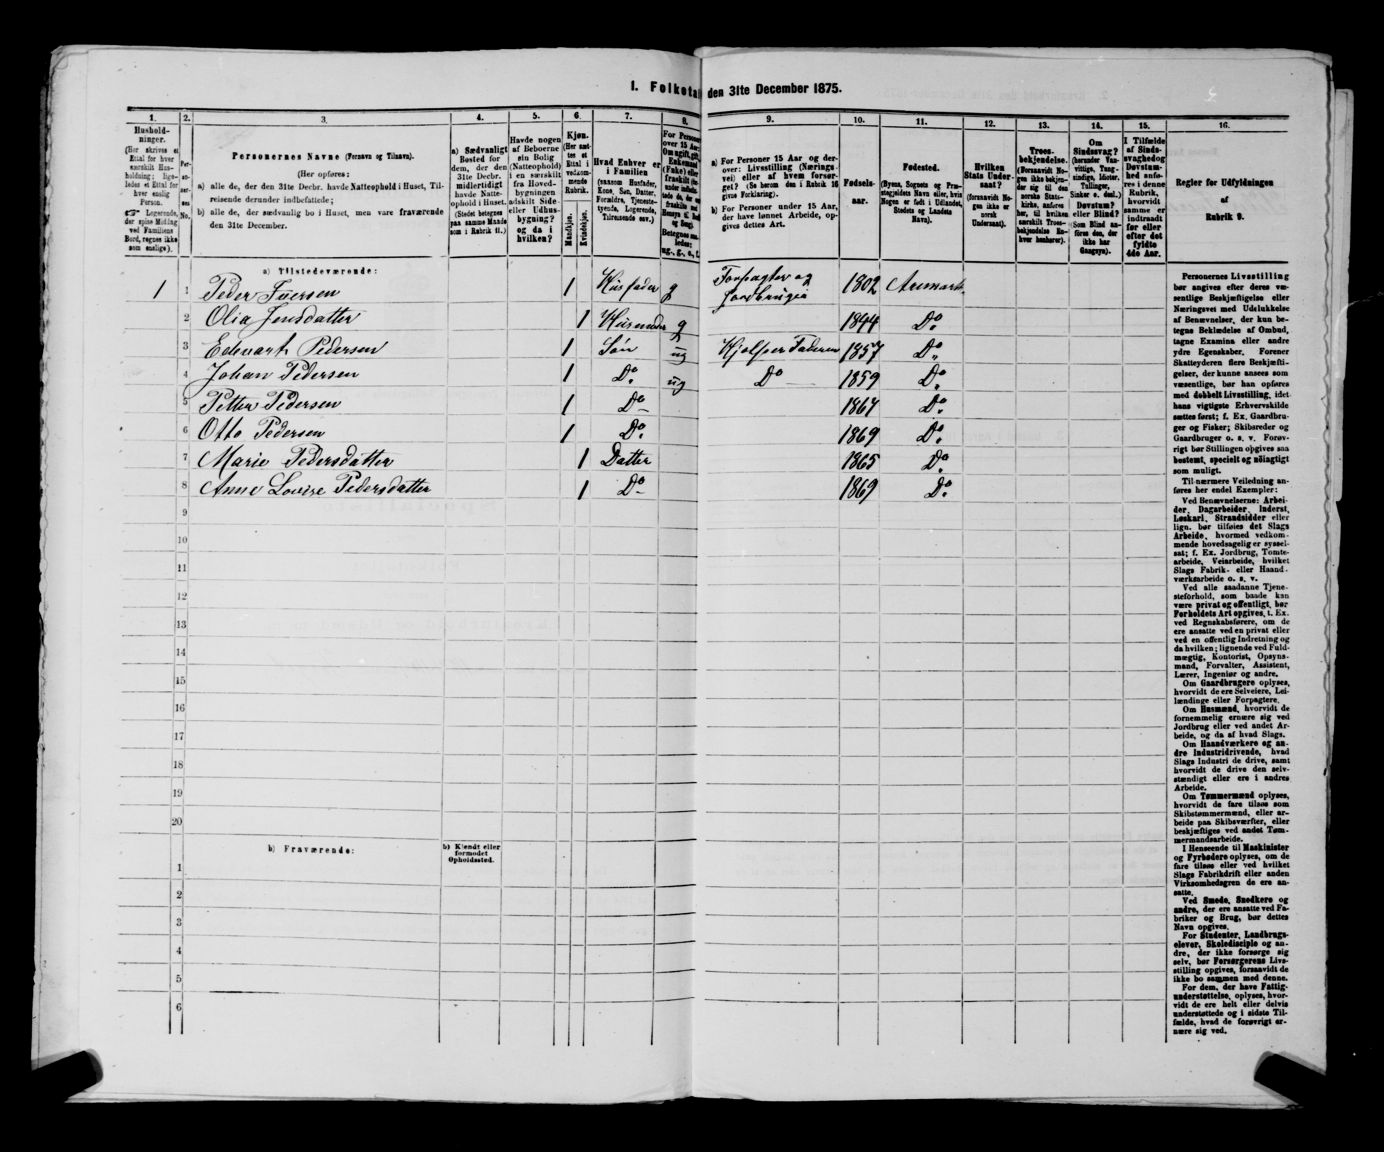 I. Folketal den 31te December 1875.
1. 2. 3. 4. 5. 6. 7. 8. 9. 10. 11. 12. 13. 14. 15. 16.
Hushold-
ninger.
(Her skrives et
Ettal for hver
særskilt Hus-
holdning; lige-
ledes et Ettal for
hver enslig
Person.
☞ Logerende,
der spise Middag
ved Familiens
Bord, regnes ikke
som enslige).
Per-
so-
ner-
nes
No.
Personernes Navne (Fornavn og Tilnavn).
(Her opføres:
a) alle de, der den 31te Decbr. havde Natteophold i Huset, Til-
reisende derunder indbefattede;
b) alle de, der sædvanlig bo i Huset, men vare fraværende
den 31te December.
a) Sædvanligt
Bosted for
dem, der den
31te Decbr.
midlertidigt
havde Natte-
ophold i Huset.
(Stedet betegnes
paa samme Maade
som i Rubrik 11.)
Havde nogen
af Beboerne
sin Bolig
(Natteophold)
i en særskilt
fra Hoved-
bygningen
adskilt Side-
eller Udhus-
bygning?
og da i
hvilken?
Kjøn.
(Her sæt-
tes et
Ettal i
vedkom-
mende
Rubrik.
Mandkjøn.
Kvindekjøn.
Hvad Enhver er
i Familien
(saasom Husfader,
Kone, Søn, Datter,
Forældre, Tjeneste-
tyende, Logerende,
Tilreisende osv.)
For Personer
over 15 Aar:
Om ugift, gift,
Enkemand
(Enke) eller
fraskilt
a) For Personer 15 Aar og der-
over: Livsstilling (Nærings-
vei) eller af hvem forsør-
get? (Se herom den i Rubrik 16
givne Forklaring).
b) For Personer under 15 Aar,
der have lønnet Arbeide, op-
gives dettes Art.
Fødsels-
aar.
Fødested.
(Byens, Sognets og Præ-
stegjeldets Navn eller, hvis
Nogen er født i Udlandet,
Stedets og Landets
Navn).
Hvilken
Stats Under-
saat?
(forsaavidt No-
gen ikke er
norsk
Undersaat).
Troes-
bekjendelse.
(Forsaavidt No-
gen ikke bekjen-
der sig til den
norske Stats-
kirke, anføres
her, til hvilken
særskilt Troes-
bekjendelse En-
hver henhører).
Om
Sindssvag?
(herunder Van-
vittige, Tung-
sindige, Idioter,
Tullinger,
Sinker o. desl.)
Døvstum?
eller Blind?
(Som Blind an-
føres den, der
ikke har
Gangsyn).
I Tilfælde
af Sinds-
svaghed og
Døvstum-
hed anfø-
res i denne
Rubrik,
hvorvidt
samme er
indtraadt
før eller
efter det
fyldte
4de Aar.
Regler for Udfyldningen
af
Rubrik 9.
a) Tilstedeværende:
1 1 Peder Iversen 1 Husfader g Forpagter og Jordbruger 1802 Aumark.
2 Olia Jensdatter 1 Husmoder g 1844 Do.
3 Edevart Pedersen 1 Søn ug Hjelper Faderen 1857 Do.
4 Johan Pedersen 1 Do. ug Do 1859 Do.
5 Petter Pedersen 1 Do 1867 Do.
6 Otto Pedersen 1 Do. 1869 Do.
7 Marie Pedersdatter 1 Datter 1865 Do.
8 Anne Lovise Pedersdatter 1 Do 1869 Do.
9
10
11
12
13
14
15
16
17
18
19
20
b) Fraværende:
b) Kjendt eller
formodet
Opholdssted.
1
2
3
4
5
6
Personernes Livsstilling
bør angives efter deres væ-
sentlige Beskjæftigelse eller
Næringsvei med Udelukkelse
af Benævnelser, der kun be-
tegne Beklædelse af Ombud,
tagne Examina eller andre
ydre Egenskaber. Forener
Skatteyderen flere Beskjæfti-
gelser, der kunne ansees som
væsentlige, bør han opføres
med dobbelt Livsstilling, idet
hans vigtigste Erhvervskilde
sættes først; f. Ex. Gaardbru-
ger og Fisker; Skibsreder og
Gaardbruger o. s. v. Forøv-
rigt bør Stillingen opgives saa
bestemt, specielt og nøiagtigt
som muligt.
Til nærmere Veiledning an-
føres her endel Exempler:
Ved Benævnelserne: Arbei-
der, Dagarbeider, Inderst,
Løskarl, Strandsidder eller
lign. bør tilføies det Slags
Arbeide, hvormed vedkom-
mende hovedsagelig er syssel-
sat; f. Ex. Jordbrug, Tomte-
arbeide, Veiarbeide, hvilket
Slags Fabrik- eller Haand-
værksarbeide o. s. v.
Ved alle saadanne Tjene-
steforhold, som baade kan
være privat og offentligt, bør
Forholdets Art opgives, t. Ex.
ved Regnskabsførere, om de
ere ansatte ved en privat eller
ved en offentlig Indretning og
da hvilken; lignende ved Fuld-
mægtig, Kontorist, Opsyns-
mand, Forvalter, Assistent,
Lærer, Ingeniør og andre.
Om Gaardbrugere oplyses,
hvorvidt de ere Selveiere, Lei-
lændinge eller Forpagtere.
Om Husmænd, hvorvidt de
fornemmelig ernære sig ved
Jordbrug eller ved andet Ar-
beide, og da af hvad Slags.
Om Haandværkere og an-
dre Industridrivende, hvad
Slags Industri de drive, samt
hvorvidt de drive den selv-
stændigt eller ere i andres
Arbeide.
Om Tømmermænd oplyses,
hvorvidt de fare tilsøs som
Skibstømmermænd, eller ar-
beide paa Skibsværfter, eller
beskjæftiges ved andet Tøm-
mermandsarbeide.
I Henseende til Maskinister
og Fyrbødere oplyses, om de
fare tilsøs eller ved hvilket
Slags Fabrikdrift eller anden
Virksomhedsgren de ere an-
satte.
Ved Smede, Snedkere og
andre, der ere ansatte ved Fa-
briker og Brug, bør dettes
Navn opgives.
For Studenter, Landbrugs-
elever, Skoledisciple og an-
dre, der ikke forsørge sig
selv, bør Forsørgerens Livs-
stilling opgives, forsaavidt de
ikke bo sammen med denne.
For dem, der have Fattig-
understøttelse, oplyses, hvor-
vidt de ere helt eller delvis
understøttede og i sidste Til-
fælde, hvad de forøvrigt er-
nære sig ved.